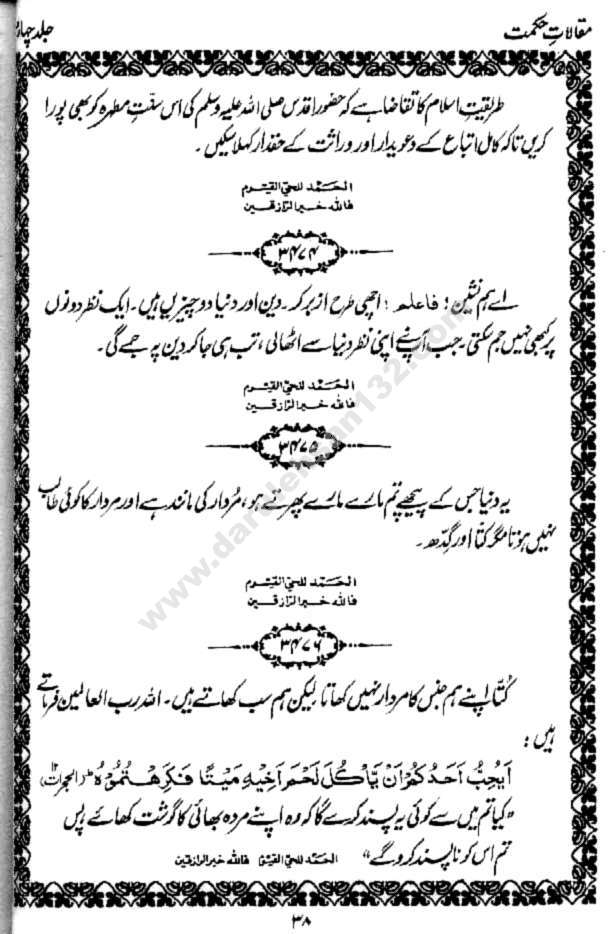 مقالاتِ حکمت
جلد چہارم
طریقیتِ اسلام کا تقاضا ہے کہ حضورِ اقدس صلی اللہ علیہ وسلم کی اس سنّتِ مطہرہ کو بھی پورا
کریں تاکہ کامل اتباع کے دعویدار اور وراثت کے حقدار کہلا سکیں۔
الحمد للحی القیوم
فاللہ خیر الرازقین
۳۴۷۴
اے ہم نشین! فاعلم! اچھی طرح ازبر کر۔ دین اور دنیا دو چیزیں ہیں۔ ایک نظر دونوں
پر کبھی نہیں جم سکتی۔ جب آپ نے اپنی نظر دنیا سے اٹھالی، تب ہی جا کر دین پہ جمے گی۔
الحمد للحی القیوم
فاللہ خیر الرازقین
۳۴۷۵
یہ دنیا جس کے پیچھے تم مارے مارے پھرتے ہو، مُردار کی مانند ہے اور مردار کا کوئی طالب
نہیں ہوتا مگر کتّا اور گِدھ۔
الحمد للحی القیوم
فاللہ خیر الرازقین
۳۴۷۶
کُتّا اپنے ہم جنس کا مردار نہیں کھاتا لیکن ہم سب کھاتے ہیں۔ اللہ رب العالمین فرماتے
ہیں :
اَیُحِبُّ اَحَدُکُمْ اَنْ یَّاْکُلَ لَحْمَ اَخِیْهِ مَیْتًا فَکَرِهْتُمُوْهُ ط (الحجرات)
"کیا تم میں سے کوئی یہ پسند کرے گا کہ وہ اپنے مردہ بھائی کا گوشت کھائے پس
تم اس کو ناپسند کرو گے"
الحمد للحی القیوم فاللہ خیر الرازقین
۳۸
www.darulehsan132.com